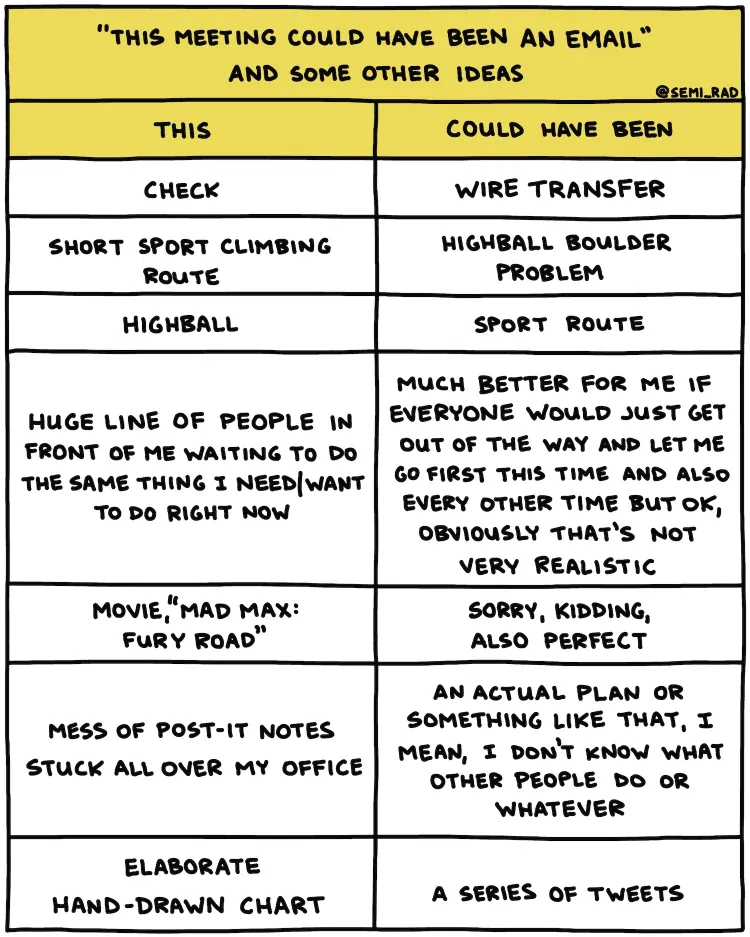 "THIS MEETING COULD HAVE BEEN AN EMAIL"
AND SOME OTHER IDEAS
@SEMI_RAD
THIS
COULD HAVE BEEN
CHECK
WIRE TRANSFER
SHORT SPORT CLIMBING
ROUTE
HIGHBALL BOULDER
PROBLEM
HIGHBALL
SPORT ROUTE
HUGE LINE OF PEOPLE IN
FRONT OF ME WAITING TO DO
THE SAME THING I NEED/WANT
TO DO RIGHT NOW
MUCH BETTER FOR ME IF
EVERYONE WOULD JUST GET
OUT OF THE WAY AND LET ME
GO FIRST THIS TIME AND ALSO
EVERY OTHER TIME BUT OK,
OBVIOUSLY THAT'S NOT
VERY REALISTIC
MOVIE, "MAD MAX:
FURY ROAD"
SORRY, KIDDING,
ALSO PERFECT
MESS OF POST-IT NOTES
STUCK ALL OVER MY OFFICE
AN ACTUAL PLAN OR
SOMETHING LIKE THAT, I
MEAN, I DON'T KNOW WHAT
OTHER PEOPLE DO OR
WHATEVER
ELABORATE
HAND-DRAWN CHART
A SERIES OF TWEETS